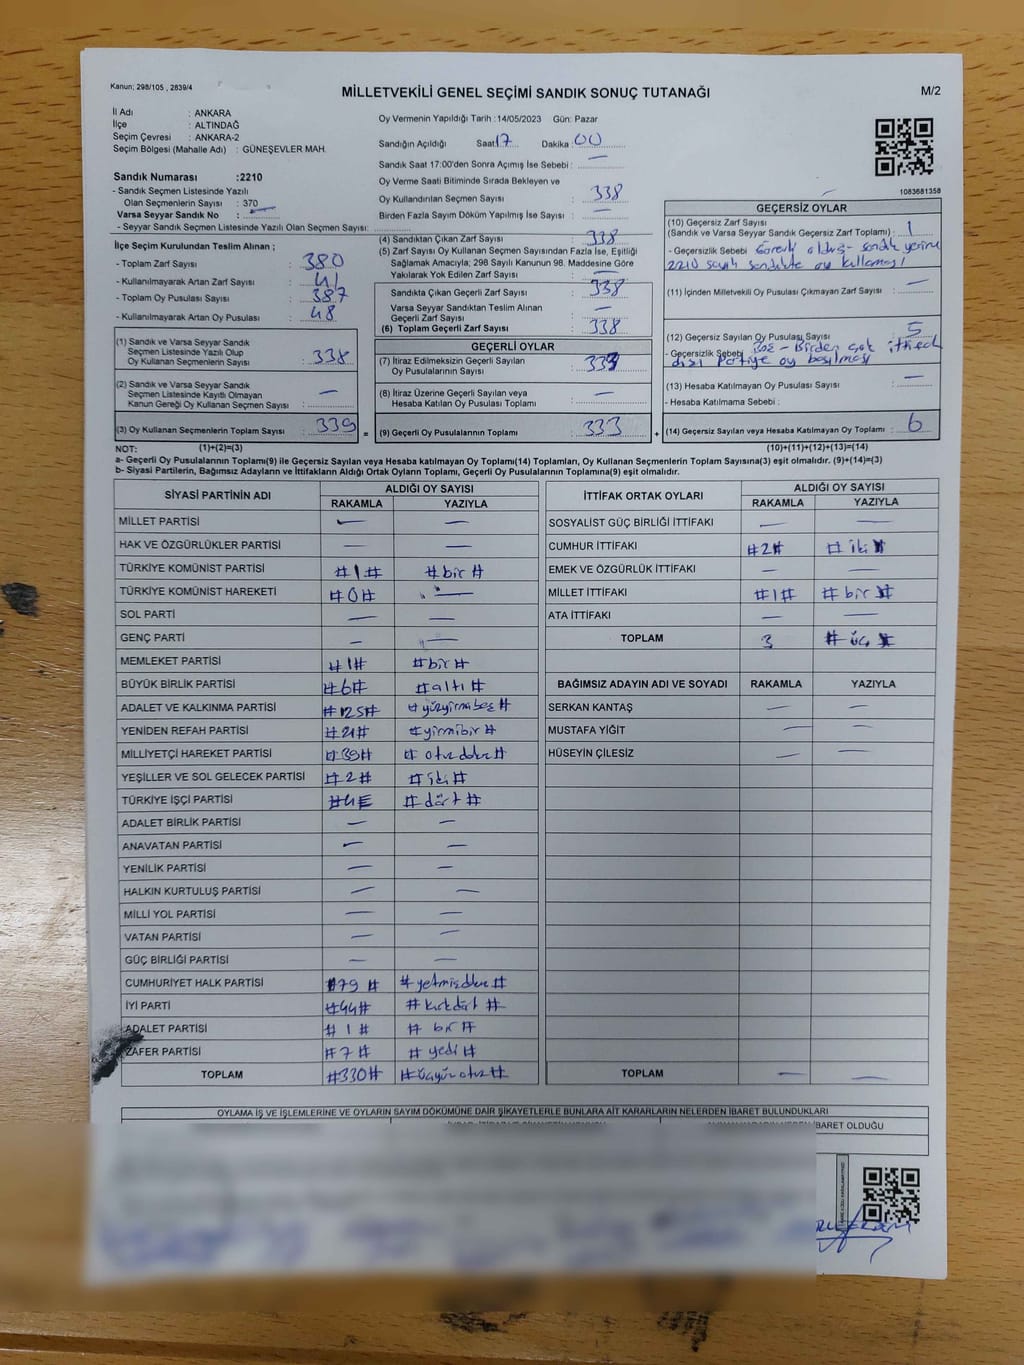 Kanun; 298/105 , 2839/4
MİLLETVEKİLİ GENEL SEÇİMİ SANDIK SONUÇ TUTANAĞI
M/2
İl Adı : ANKARA
İlçe : ALTINDAĞ
Seçim Çevresi : ANKARA-2
Seçim Bölgesi (Mahalle Adı) : GÜNEŞEVLER MAH.
Sandık Numarası :2210
- Sandık Seçmen Listesinde Yazılı
Olan Seçmenlerin Sayısı : 370
Varsa Seyyar Sandık No : —
- Seyyar Sandık Seçmen Listesinde Yazılı Olan Seçmen Sayısı:
İlçe Seçim Kurulundan Teslim Alınan ;
- Toplam Zarf Sayısı : 380
- Kullanılmayarak Artan Zarf Sayısı : 41
- Toplam Oy Pusulası Sayısı : 387
- Kullanılmayarak Artan Oy Pusulası : 48
(1) Sandık ve Varsa Seyyar Sandık
Seçmen Listesinde Yazılı Olup
Oy Kullanan Seçmenlerin Sayısı : 338
(2) Sandık ve Varsa Seyyar Sandık
Seçmen Listesinde Kayıtlı Olmayan
Kanun Gereği Oy Kullanan Seçmen Sayısı : —
(3) Oy Kullanan Seçmenlerin Toplam Sayısı : 339 =
Oy Vermenin Yapıldığı Tarih :14/05/2023 Gün: Pazar
Sandığın Açıldığı Saat 17 Dakika : 00
Sandık Saat 17:00'den Sonra Açımış İse Sebebi : —
Oy Verme Saati Bitiminde Sırada Bekleyen ve
Oy Kullandırılan Seçmen Sayısı : 338
Birden Fazla Sayım Döküm Yapılmış İse Sayısı : —
(4) Sandıktan Çıkan Zarf Sayısı : 338
(5) Zarf Sayısı Oy Kullanan Seçmen Sayısından Fazla İse, Eşitliği
Sağlamak Amacıyla; 298 Sayılı Kanunun 98. Maddesine Göre
Yakılarak Yok Edilen Zarf Sayısı : —
Sandıkta Çıkan Geçerli Zarf Sayısı : 338
Varsa Seyyar Sandıktan Teslim Alınan
Geçerli Zarf Sayısı : —
(6) Toplam Geçerli Zarf Sayısı : 338
GEÇERLİ OYLAR
(7) İtiraz Edilmeksizin Geçerli Sayılan
Oy Pusulalarının Sayısı : 333
(8) İtiraz Üzerine Geçerli Sayılan veya
Hesaba Katılan Oy Pusulası Toplamı : —
(9) Geçerli Oy Pusulalarının Toplamı : 333 +
1083681358
GEÇERSİZ OYLAR
(10) Geçersiz Zarf Sayısı
(Sandık ve Varsa Seyyar Sandık Geçersiz Zarf Toplamı) : 1
- Geçersizlik Sebebi Görevli olduğu sandık yerine
2210 sayılı sandıkta oy kullaması
(11) İçinden Milletvekili Oy Pusulası Çıkmayan Zarf Sayısı : —
(12) Geçersiz Sayılan Oy Pusulası Sayısı : 5
- Geçersizlik Sebebi Boş - Birden çok ittifak
dışı Partiye oy basılması
(13) Hesaba Katılmayan Oy Pusulası Sayısı : —
- Hesaba Katılmama Sebebi :
(14) Geçersiz Sayılan veya Hesaba Katılmayan Oy Toplamı : 6
NOT: (1)+(2)=(3) (10)+(11)+(12)+(13)=(14)
a- Geçerli Oy Pusulalarının Toplamı(9) ile Geçersiz Sayılan veya Hesaba katılmayan Oy Toplamı(14) Toplamları, Oy Kullanan Seçmenlerin Toplam Sayısına(3) eşit olmalıdır. (9)+(14)=(3)
b- Siyasi Partilerin, Bağımsız Adayların ve İttifakların Aldığı Ortak Oyların Toplamı, Geçerli Oy Pusulalarının Toplamına(9) eşit olmalıdır.
SİYASİ PARTİNİN ADI ALDIĞI OY SAYISI
RAKAMLA YAZIYLA
MİLLET PARTİSİ — —
HAK VE ÖZGÜRLÜKLER PARTİSİ — —
TÜRKİYE KOMÜNİST PARTİSİ #1# #bir#
TÜRKİYE KOMÜNİST HAREKETİ #0# —
SOL PARTİ — —
GENÇ PARTİ — —
MEMLEKET PARTİSİ #1# #bir#
BÜYÜK BİRLİK PARTİSİ #6# #altı#
ADALET VE KALKINMA PARTİSİ #125# #yüzyirmibeş#
YENİDEN REFAH PARTİSİ #21# #yirmibir#
MİLLİYETÇİ HAREKET PARTİSİ #39# #otuzdokuz#
YEŞİLLER VE SOL GELECEK PARTİSİ #2# #iki#
TÜRKİYE İŞÇİ PARTİSİ #4# #dört#
ADALET BİRLİK PARTİSİ — —
ANAVATAN PARTİSİ — —
YENİLİK PARTİSİ — —
HALKIN KURTULUŞ PARTİSİ — —
MİLLİ YOL PARTİSİ — —
VATAN PARTİSİ — —
GÜÇ BİRLİĞİ PARTİSİ — —
CUMHURİYET HALK PARTİSİ #79# #yetmişdokuz#
İYİ PARTİ #44# #kırkdört#
ADALET PARTİSİ #1# #bir#
ZAFER PARTİSİ #7# #yedi#
TOPLAM #330# #üçyüzotuz#
İTTİFAK ORTAK OYLARI ALDIĞI OY SAYISI
RAKAMLA YAZIYLA
SOSYALİST GÜÇ BİRLİĞİ İTTİFAKI — —
CUMHUR İTTİFAKI #2# #iki#
EMEK VE ÖZGÜRLÜK İTTİFAKI — —
MİLLET İTTİFAKI #1# #bir#
ATA İTTİFAKI — —
TOPLAM 3 #üç#
BAĞIMSIZ ADAYIN ADI VE SOYADI RAKAMLA YAZIYLA
SERKAN KANTAŞ — —
MUSTAFA YİĞİT — —
HÜSEYİN ÇİLESİZ — —
TOPLAM — —
OYLAMA İŞ VE İŞLEMLERİNE VE OYLARIN SAYIM DÖKÜMÜNE DAİR ŞİKAYETLERLE BUNLARA AİT KARARLARIN NELERDEN İBARET BULUNDUKLARI
İBARET OLDUĞU